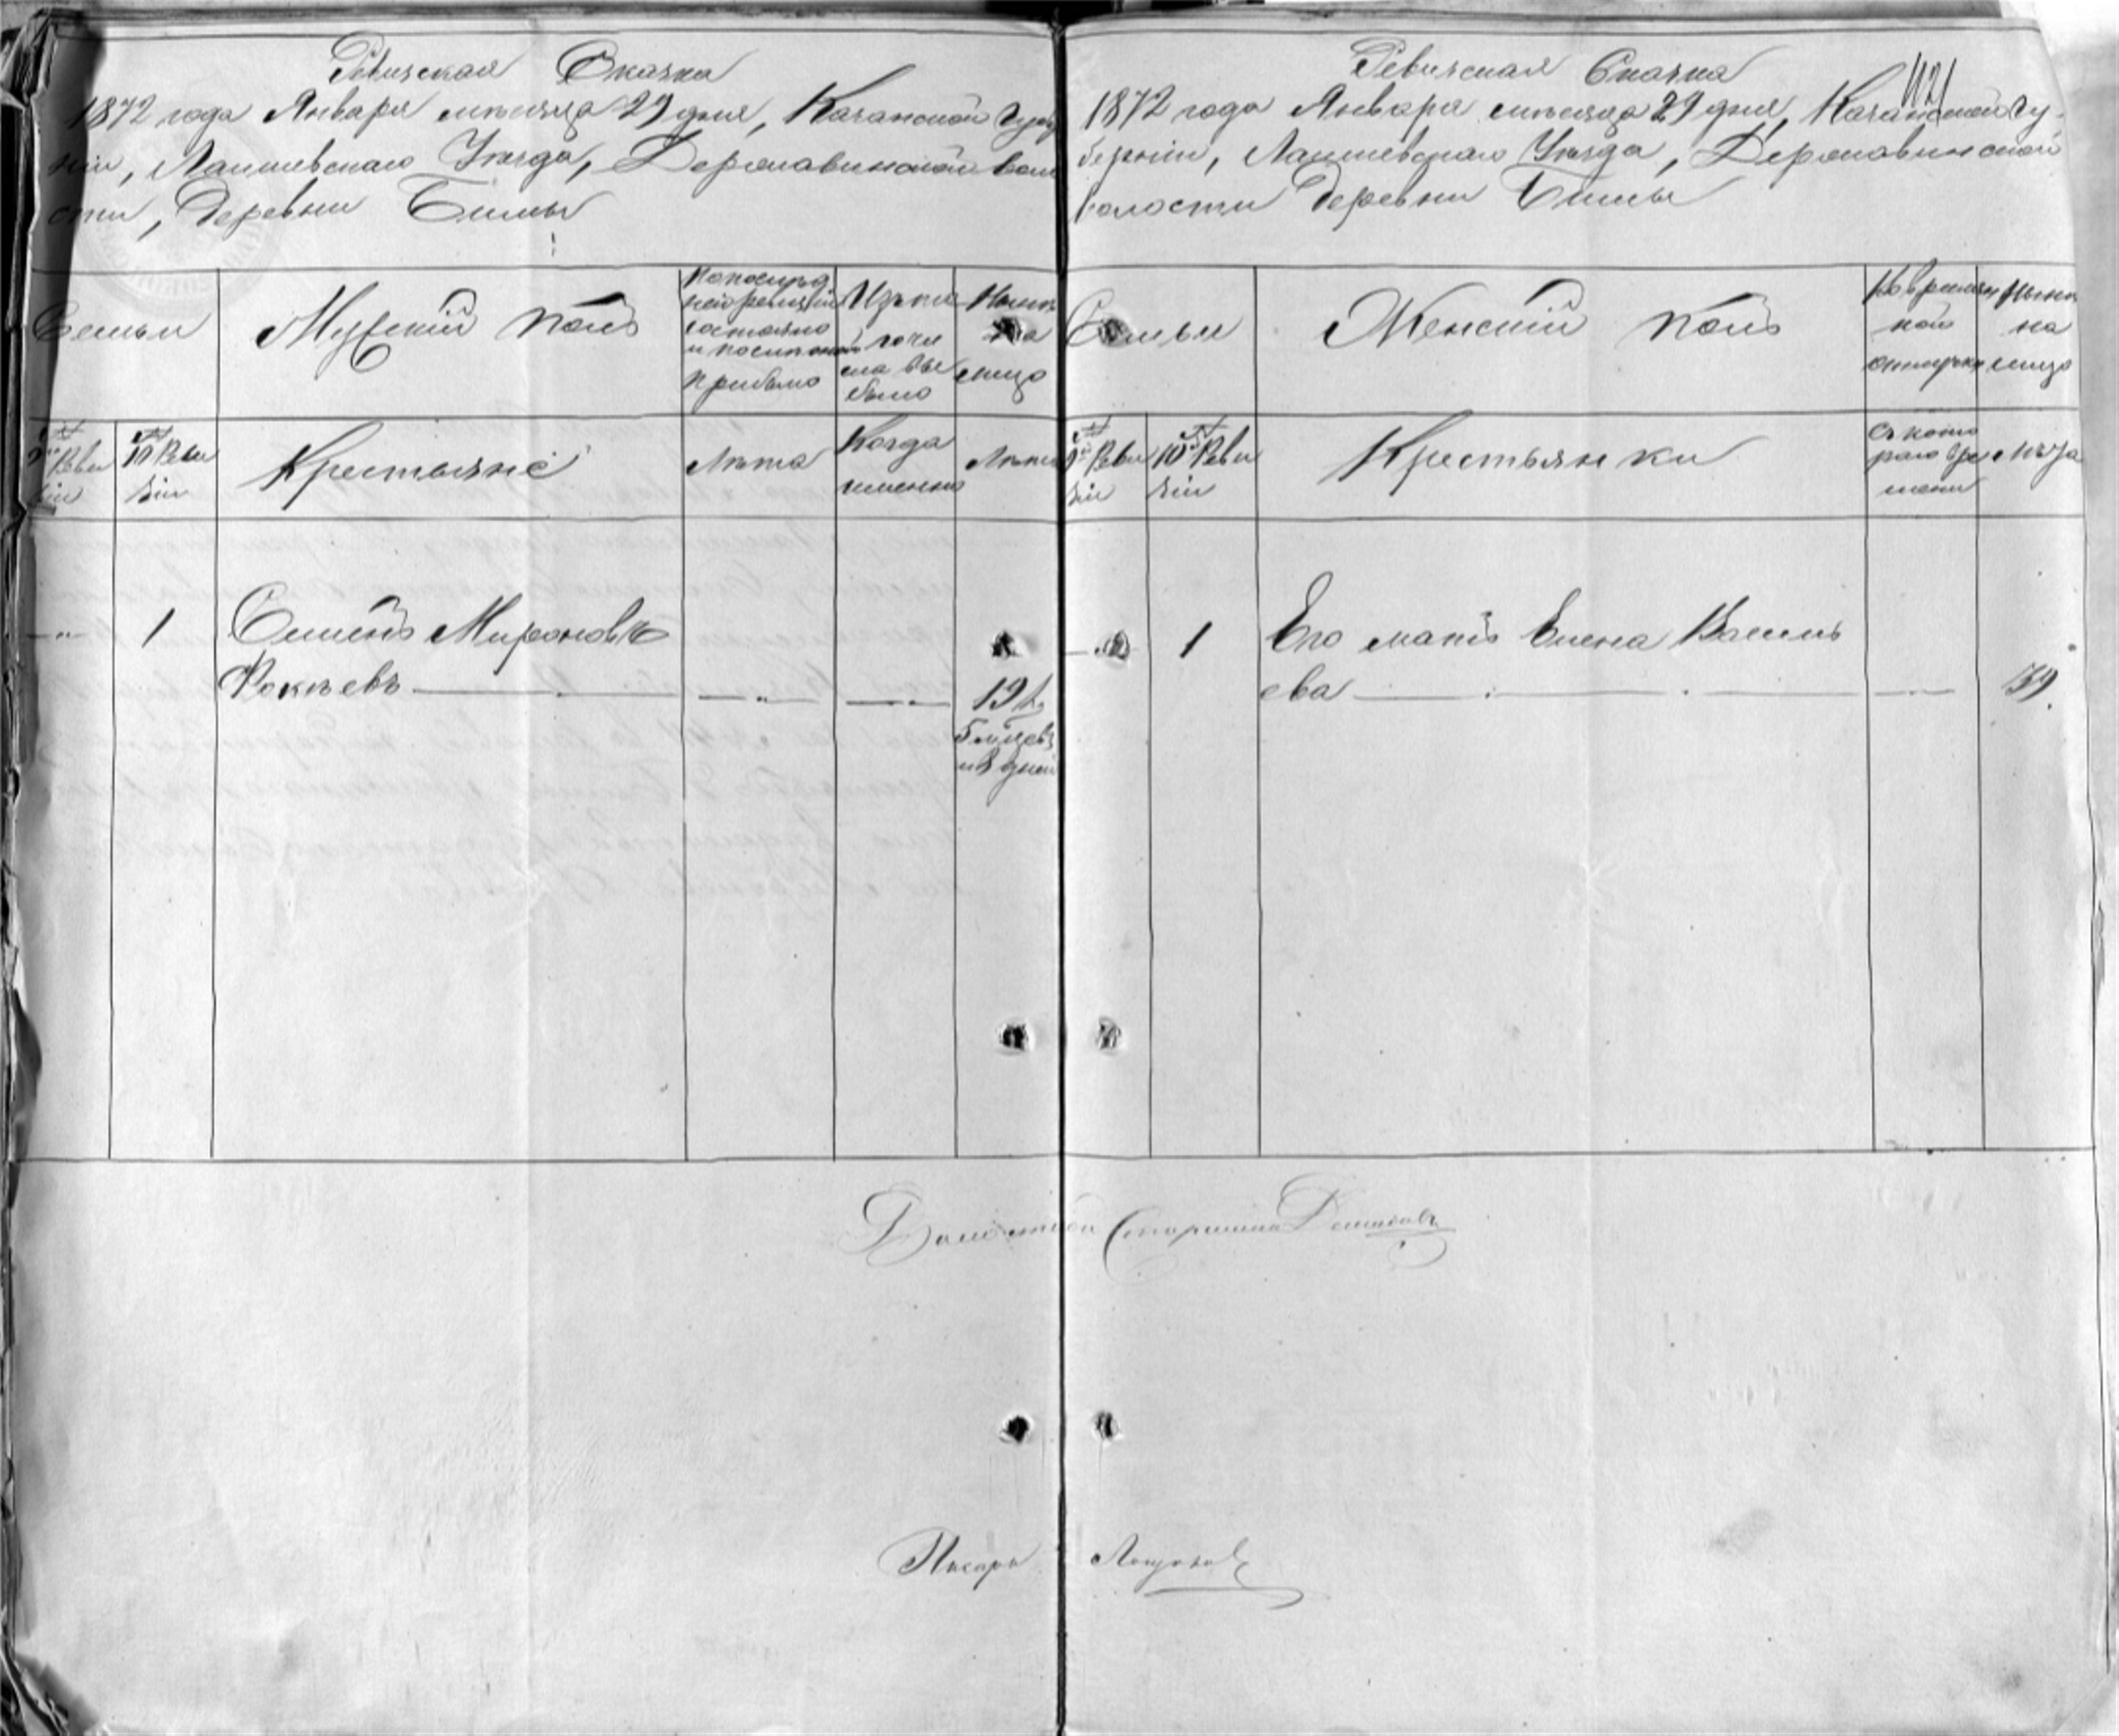 Ревизская Сказка
1872 года Января мѣсяца 29 дня, Казанской Губер
ніи, Лаишевскаго Уѣзда, Державинской воло
сти, Деревни Бимы
Семьи
Мужскій полъ
По послѣд
ней ревизіи
состояло
и послѣ оной
прибыло
Изъ то
го чи
сла вы
было
Нынѣ
на
лицо
№
9й Реви
зіи
№
10 Реви
зіи
Крестьяне
Лѣта
Когда
именно
Лѣта
— „ 1 Семенъ Мироновъ
Фокѣевъ — „ — — „ — 19 л.
5 мѣсцвъ
и 8 дней
1121
Ревизская Сказка
1872 года Января мѣсяца 29 дня, Казанской Гу-
берніи, Лаишевскаго Уѣзда, Державинской
волости Деревни Бимы
Семьи
Женскій полъ
Во времен
ной
отлучкѣ
Нынѣ
на
лицо
№
9й Реви
зіи
№
10й Реви
зіи
Крестьянки
Съ кото
раго вре
мени
Лѣта
1 Его мать Елена Василь
ева 39.
Волостной Старшина
Писарь